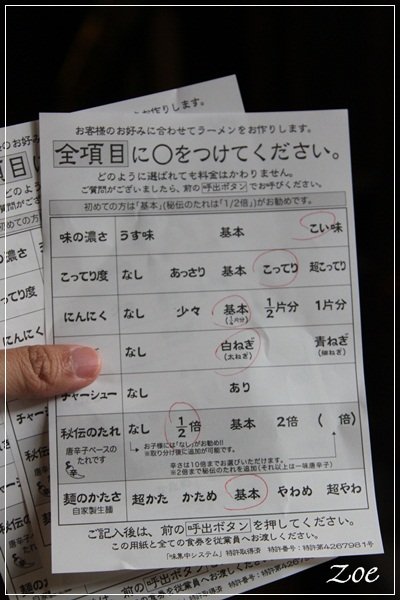 お客様のお好みに合わせてラーメンをお作りします。
全項目に○をつけてください。
どのように選ばれても料金はかわりません。
ご質問がございましたら、前の呼出ボタンでお呼びください。
初めての方は「基本」(秘伝のたれは「1/2倍」)がお勧めです。
味の濃さ うす味 基本 こい味
こってり度 なし あっさり 基本 こってり 超こってり
にんにく なし 少々 基本 1/2片分 1片分
(1/4片分)
なし 白ねぎ 青ねぎ
(太ねぎ) (細ねぎ)
チャーシュー なし あり
秘伝のたれ なし 1/2倍 基本 2倍 ( 倍)
唐辛子ベースのたれです
お子様には「なし」がお勧め!!
※取り分け後に追加が可能です。
辛さは10倍までお選びいただけます。
※2倍まで秘伝のたれを追加(それ以上は一味唐辛子)
麺のかたさ 超かた かため 基本 やわめ 超やわ
自家製生麺
ご記入後は、前の呼出ボタンを押してください。
この用紙と全ての食券を従業員へお渡しください。
「味集中システム」特許取得済 特許番号:特許第4267981号
Zoe